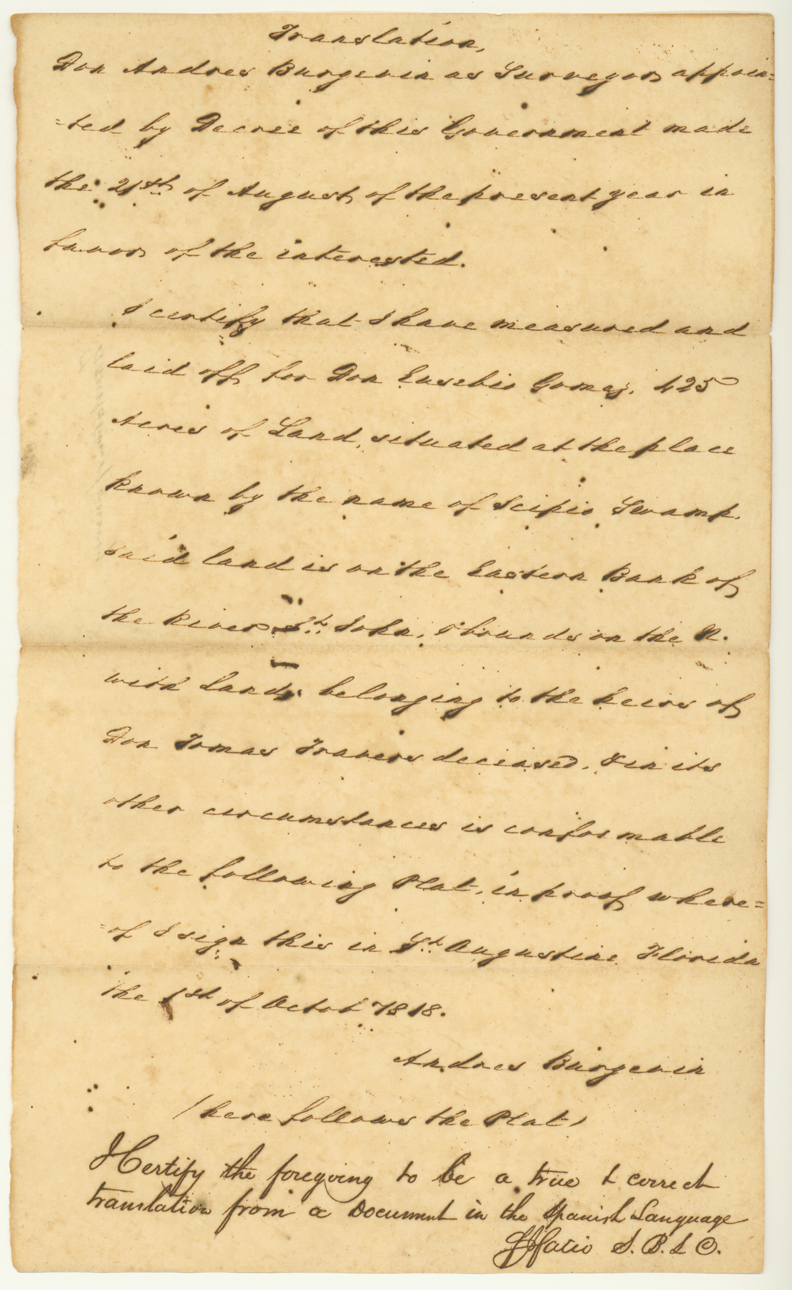 Translation,
Don Andres Burgevin as Surveyor appoin=
=ted by Decree of this Government made
the 21st of August, of the present year in
favor of the interested.
I certify that I have measured and
laid off for Don Eusebio Gomez, 425
Acres of Land, situated at the place
known by the name of Scipio Swamp.
said land is on the Eastern Bank of
the River St. John, & bounds on the N.
with Lands belonging to the heirs of
Don Tomas Travers deceased, & in its
other circumstances is conformable
to the following Plat, in proof where=
=of I sign this in St. Augustine Florida
the 1st of Octob 1818.
Andres Burgevin
(here follows the Plat)
I Certify the foregoing to be a true & correct
translation from a Document in the Spanish Language
Fatio S.B.L C.